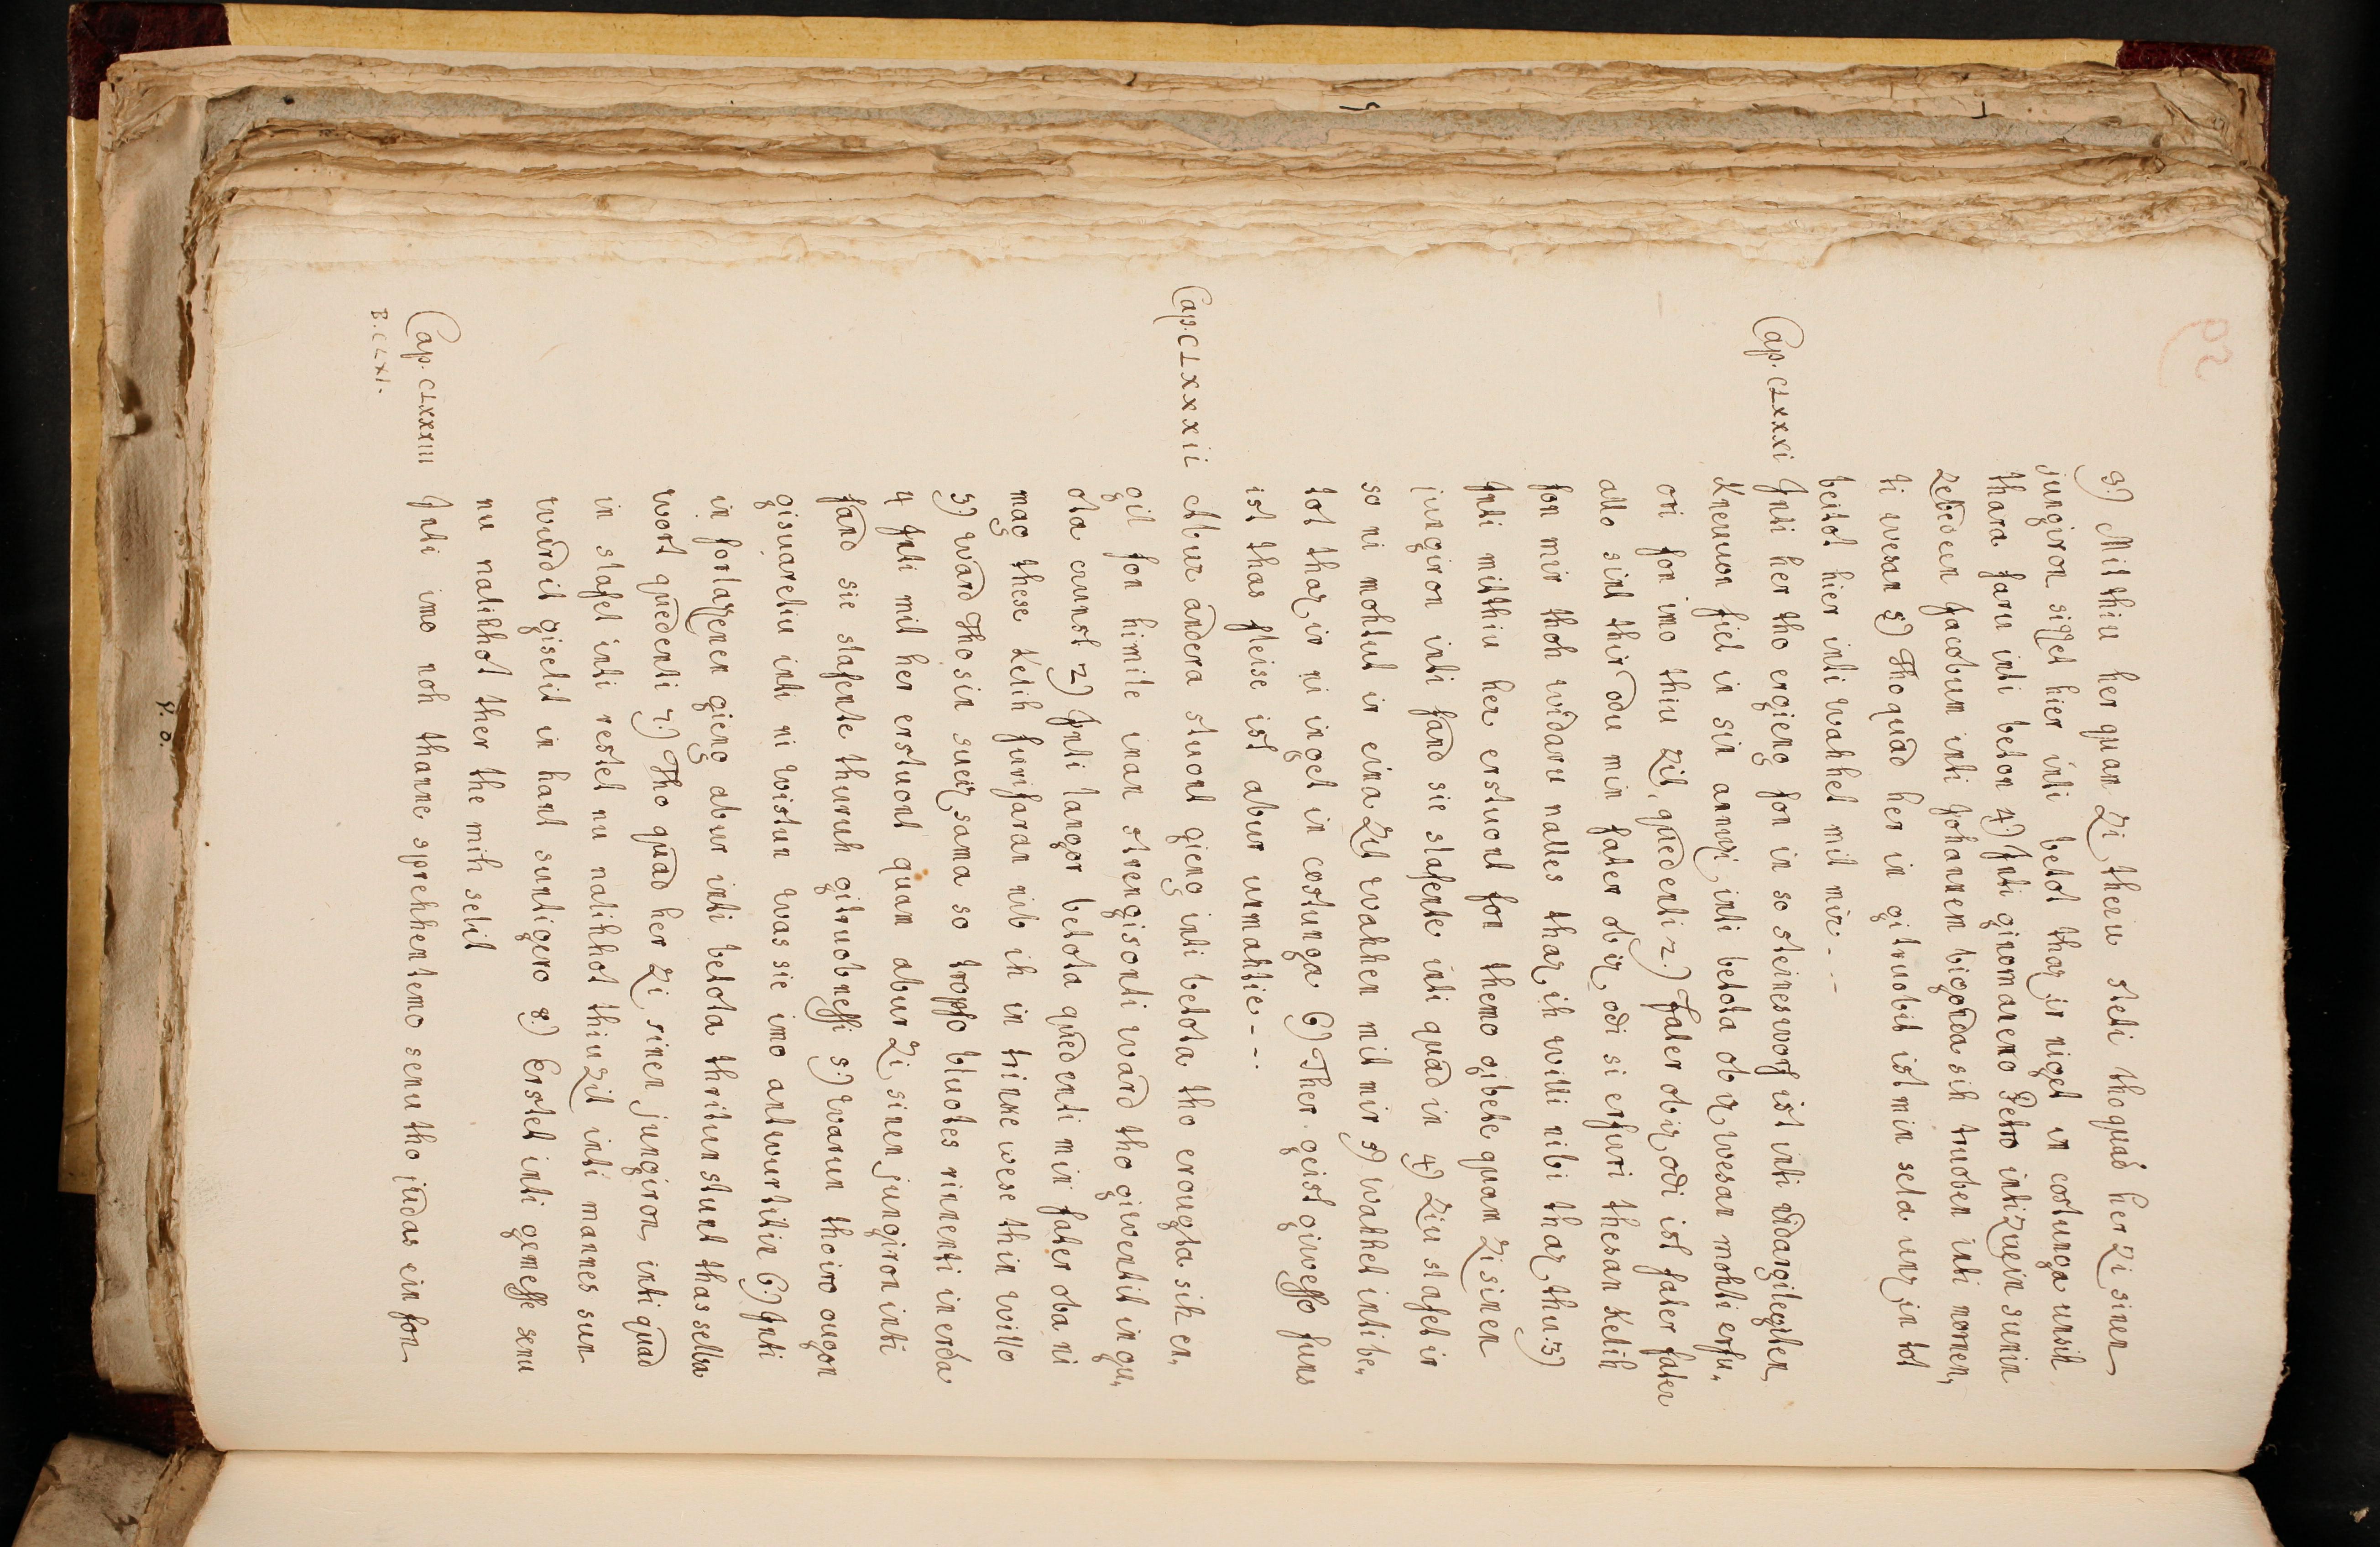 3.) Mit thiu her quam Zi theru steti tho quad her Zi sinen
jungiron sizzet hier inti betot thaz ir niget in costunga unsih
thara faru inti beton 4.) Inti ginomaneno Petro inti zuein sunin
Zebedeen Jacobum inti Johannem bigonda sih truoben inti nornen,
ti wesan 5.) Tho quad her in gitruobit ist min sela unz in tot
beitot hier inti wahhet mit mir - - -
Cap. CLXXXI Inti her tho ergieng fon in so steineswof ist inti nidargilegiten
Knewon fiel in sin annuzi, inti betota ob iz wesan mohti erfu„
ori fon imo thiu Zit, quedenti 2.) Fater ob iz odi ist fater fater
allo sint thir odu min fater ob iz odi si erfuri thesan Kelih
fon mir thoh widaru nalles thaz ih willi nibi thaz thu. 3)
Inti mitthiu her erstuont fon themo gibete quam Zi sinen
jungiron inti fand sie slafente inti quad in 4) Ziu slafet ir
so ni mohtut ir eina Zit wahhen mit mir 5) wahhet inti be„
tot thaz ir ni inget in costunga 6) Ther geist giwesso funs
ist thas fleisc ist abur unmahtic - - -
Cap. CLXXXII Abur andera stuont gieng inti betota tho erougta sih en,
gil fon himile inan strengisonti ward tho giwentit in gu„
ota cuunst 2) Inti langor betota quedenti min fater oba ni
mag these Kelih furifaran nib ih in trinke wese thin willo
3.) Ward tho sin sueiz sama so tropfo bluotes rinenti in erda
4 Inti mit her erstuont quam abur Zi sinen jungiron inti
fand sie slafente thuruh gitruobnessi 5.) Warun tho iro ougon
gisuaretiu inti ni wistun was sie imo antwurtitin 6.) Inti
in forlazenen gieng abur inti betota thritun stunt thas selba
wort quedenti 7.) Tho quad her Zi sinen jungiron inti quad
in slafet inti restet nu nalihhot thiu Zit inti mannes sun
wirdit giselit in hant suntigero 8.) Erstet inti gemesse senu
nu nalihhot ther the mih selit
Cap. CLXXXIII Inti imo noh thanne sprehhentemo senu tho judas ein fon
B. CLXI.